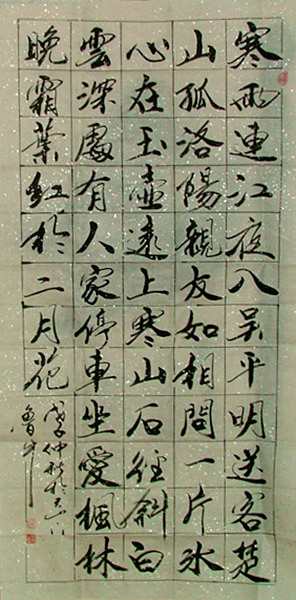 寒雨連江夜入吳平明送客楚
山孤洛陽親友如相問一片冰
心在玉壺遠上寒山石徑斜白
雲深處有人家停車坐愛楓林
晚霜葉紅於二月花
戊子仲秋於